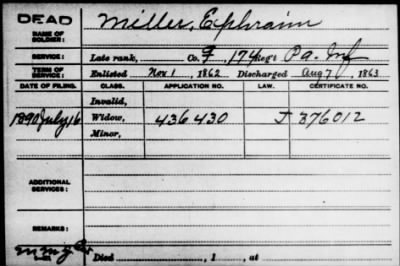 DEAD
NAME OF SOLDIER: Miller, Ephraim
SERVICE: Late rank, Co. F, 174 Reg't Pa. Inf
TERM OF SERVICE: Enlisted Nov. 1, 1862 Discharged Aug 7, 1863
DATE OF FILING. CLASS. APPLICATION NO. LAW. CERTIFICATE NO.
Invalid,
1890 July 16 Widow, 436430 J 376012
Minor,
ADDITIONAL SERVICES:
REMARKS:
Died , 1 , at